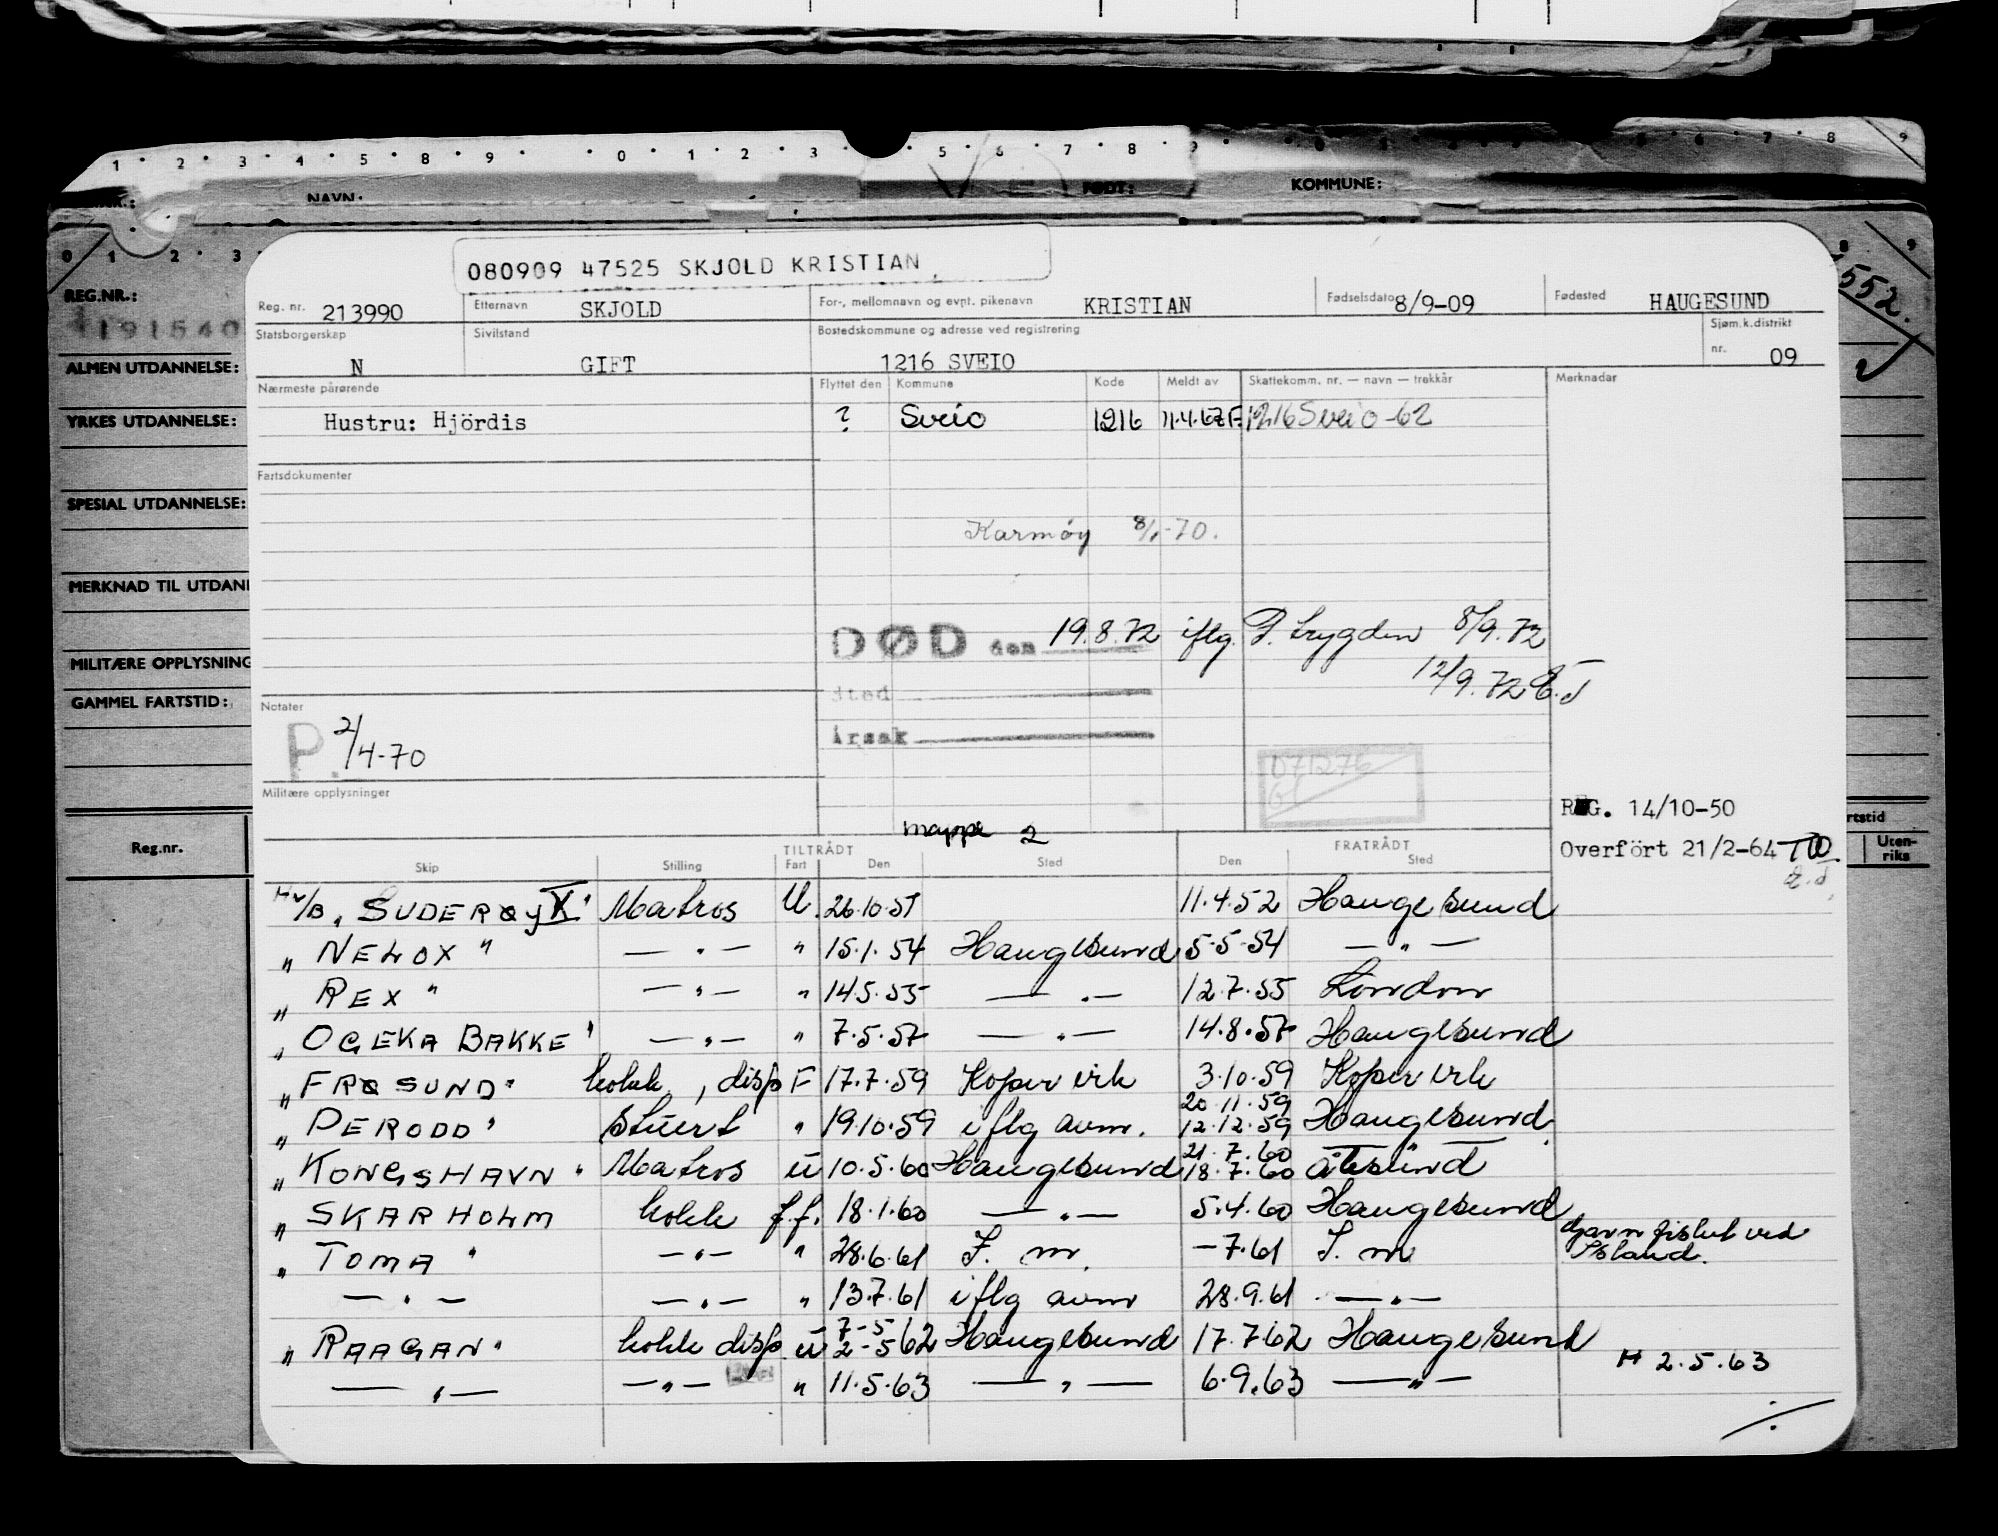 1 · 2 · 3 · 4 · 5 · 8 · 9 · · 0 · 1 · 2 · 3 5 · 6 · 7 · 8 · 9 · 0 6 · 7 · 8 9
NAVN: FØDT: KOMMUNE:
0 1 2 · 3 8 9
080909 47525 SKJOLD KRISTIAN
REG.NR.: 552.
191540
Reg. nr. 213990 Etternavn SKJOLD For-, mellomnavn og evnt. pikenavn KRISTIAN Fødselsdato 8/9-09 Fødested HAUGESUND
Statsborgerskap Sivilstand Bostedskommune og adresse ved registrering Sjøm.k.distrikt
N GIFT 1216 SVEIO nr. 09
ALMEN UTDANNELSE:
Nærmeste pårørende Flyttet den Kommune Kode Meldt av Skattekomm. nr. — navn — trekkår Merknader
YRKES UTDANNELSE: Hustru: Hjördis ? Sveio 1216 11.4.62 F. 1216 Sveio -62
Fartsdokumenter
SPESIAL UTDANNELSE:
Karmøy 8/1-70.
MERKNAD TIL UTDAN
DØD den 19.8.72 iflg. P. trygden 8/9.72
MILITÆRE OPPLYSNING 12/9.72
sted
GAMMEL FARTSTID: Notater
P. 2/4-70 Årsak
071276
Militære opplysninger
REG. 14/10-50
mappe 2
Reg.nr. TILTRÅDT FRATRÅDT Overfört 21/2-64 rtstid
Skip Stilling Fart Den Sted Den Sted Uten-
riks
M/B " SUDERØY X " Matros U. 26.10.51 11.4.52 Haugesund
" NELOX " — " — " 15.1.54 Haugesund 5.5.54 — " —
" REX " — " — " 14.5.55 — " — 12.7.55 London
" OGEKA BAKKE " — " — " 7.5.57 — " — 14.8.57 Haugesund
" FRØSUND " kokk, disp F 17.7.59 Kopervik 3.10.59 Kopervik
20.11.59
" PERODD " Stuert " 19.10.59 iflg avm. 12.12.59 Haugesund
21.7.60
" KONGSHAVN " Matros u 10.5.60 Haugesund 18.7.60
" SKARHOLM kokk f.f. 18.1.60 — " — 5.4.60 Haugesund
" TOMA " — " — " 28.6.61 I. m. -7.61 I. m Garnfisket ved
Island.
— " — — " — " 13.7.61 iflg avm 28.9.61 — " —
7-5
" RAAGAN " kokk disp u 2-5 62 Haugesund 17.7.62 Haugesund
H 2.5.63
— " — — " — " 11.5.63 — " — 6.9.63 — " —